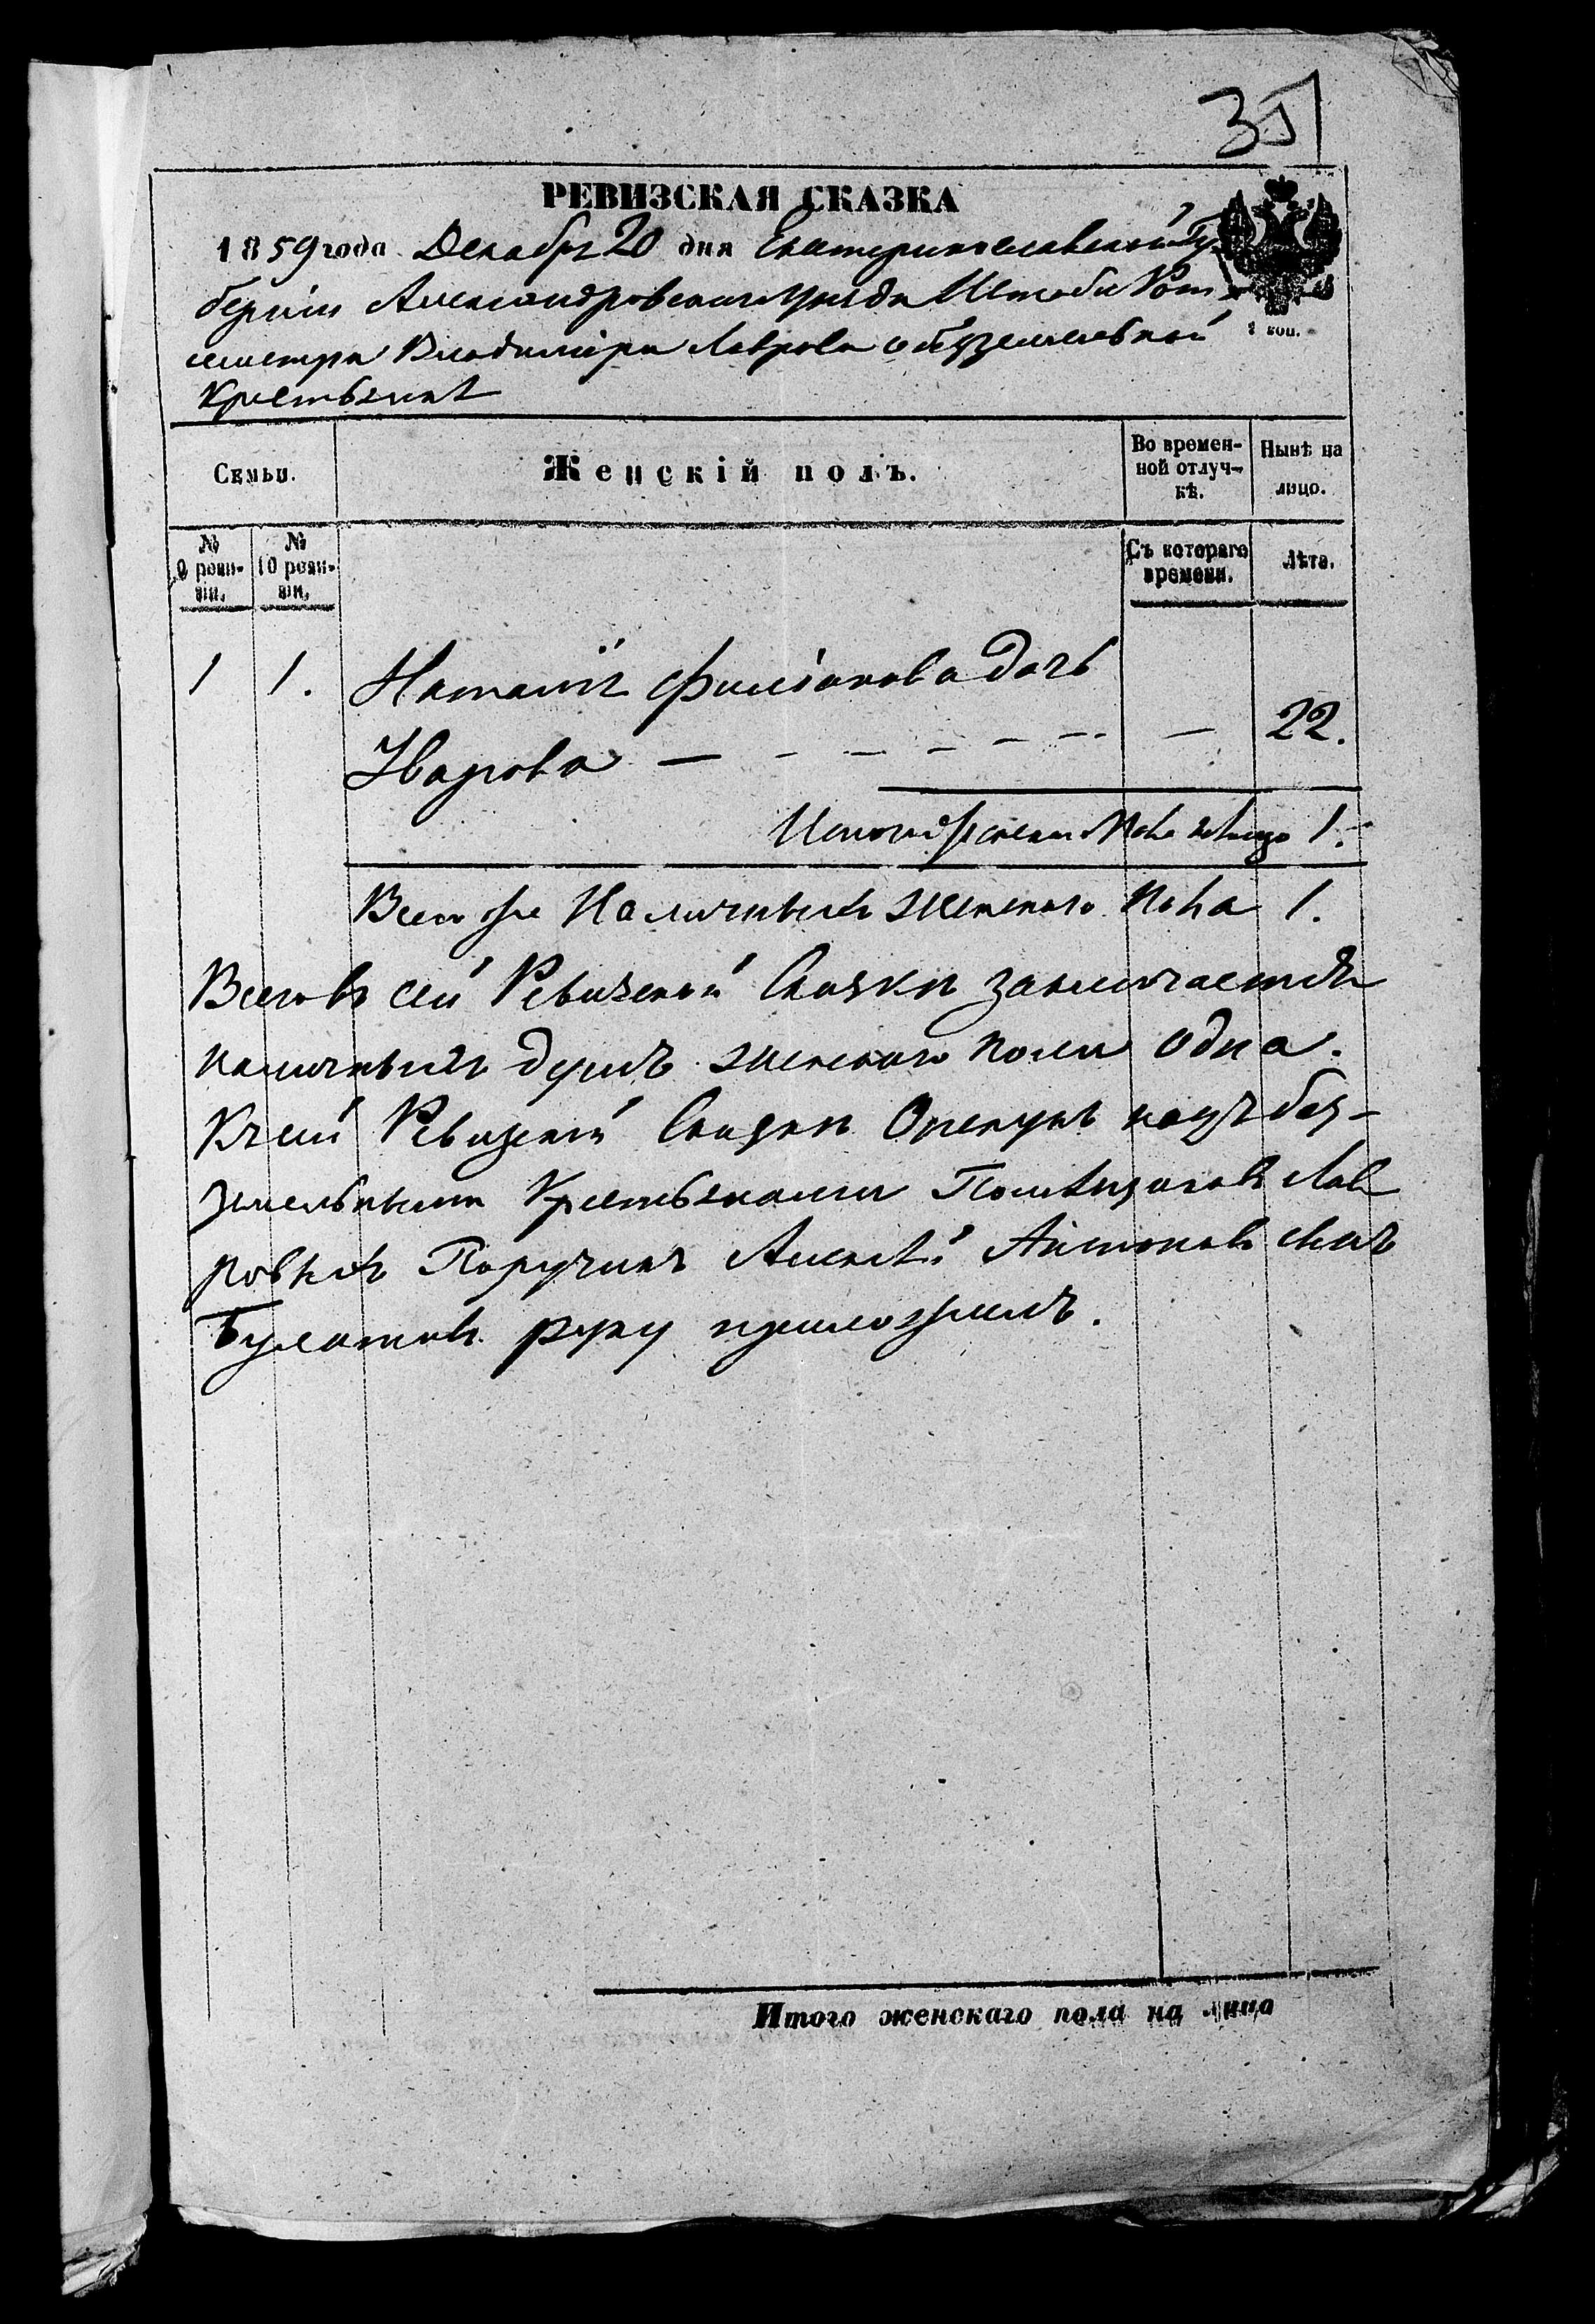 35
РЕВИЗСКАЯ СКАЗКА
1859 года Декабря 20 дня Екатеринославской Гу-
берніи Александровскаго Уезда Штабъ Рот
мистра Владиміра Лаврова о безземельной
Крестьянкѣ
1 коп.
Семьи.
Женскій полъ.
Во времен-
ной отлуч-
кѣ.
Нынѣ на
лицо.
№
9 реви-
зіи.
№
10 реви-
зіи.
Съ котораго
времени.
Лѣта.
1 1. Наталія дочь
— — — — — — — — 22.
женскаго Пола налицо 1.
Всего же Наличныхъ женскаго Пола 1.
Всего въ сей Ревизской Сказки заключается
наличныхъ душъ женскаго пола одна.
Къ сей Ревизской Сказки Опекунъ надъ без-
земельными Крестьянами Помѣщиковъ Лав
ровыхъ Поручикъ Алексѣй Антоновъ сынъ
Булатовъ руку приложилъ.
Итого женскаго пола на лицо